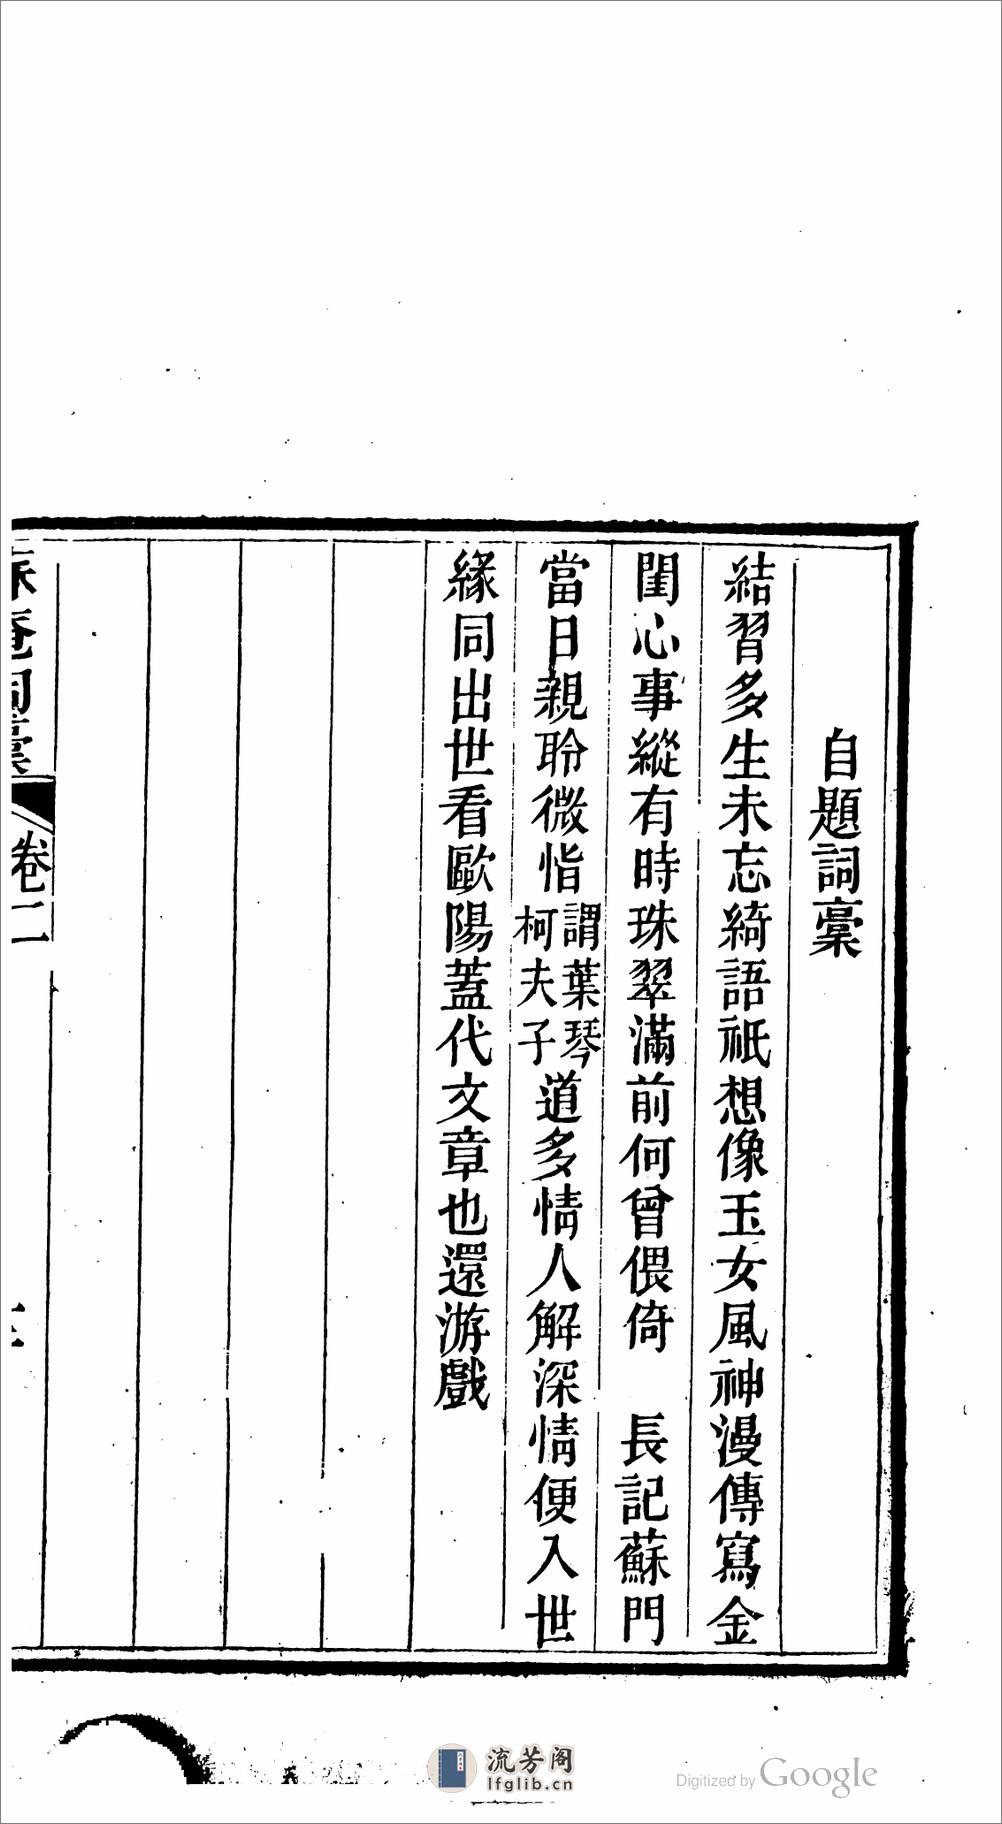 自題詞稾
結習多生未忘綺語祇想像玉女風神漫傳寫金
閨心事縱有時珠翠滿前何曾偎倚　長記蘇門
當日親聆微恉謂葉琴柯夫子道多情人解深情便入世
緣同出世看歐陽蓋代文章也還游戲
庵詞稾
卷二
流芳阁
lfglib.cn
Digitized by Google